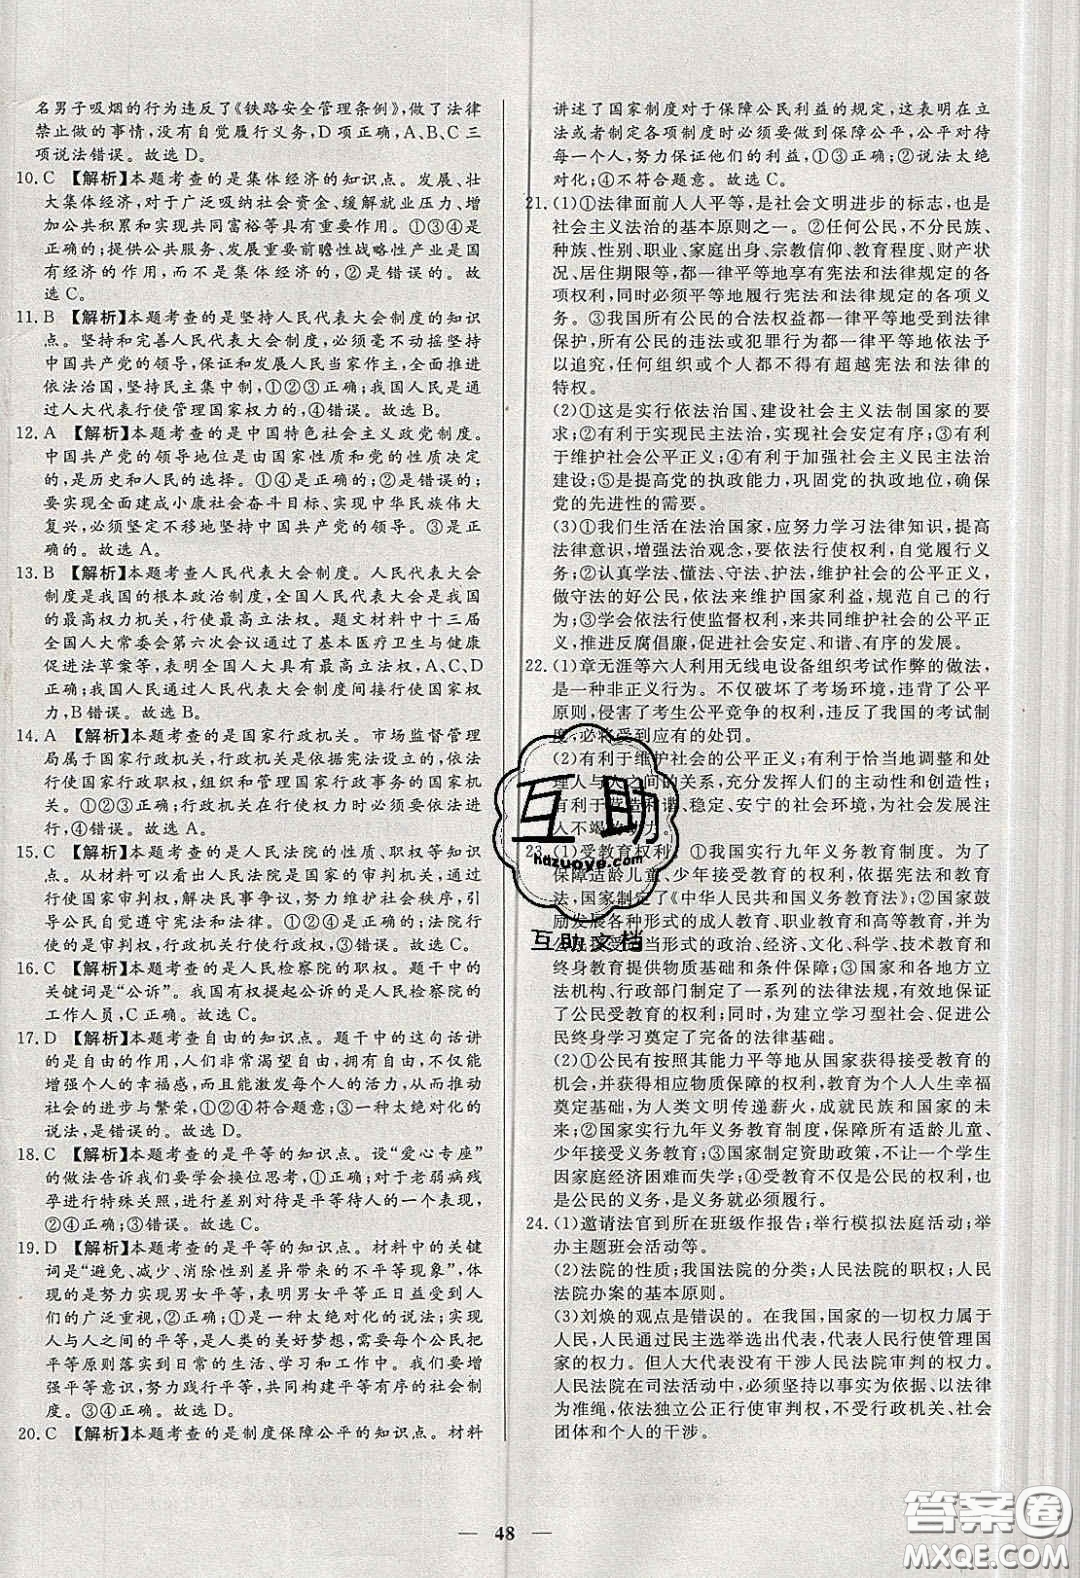 名男子吸烟的行为违反了《铁路安全管理条例》,做了法律
禁止做的事情,没有自觉履行义务,D项正确,A、B、C三
项说法错误。故选D。
10. C 【解析】本题考查的是集体经济的知识点。发展、壮
大集体经济,对于广泛吸纳社会资金、缓解就业压力、增
加公共积累和实现共同富裕等具有重要作用。①③④是
正确的;提供公共服务、发展重要前瞻性战略性产业是国
有经济的作用,而不是集体经济的作用,②是错误的。故
选C。
11. B 【解析】本题考查的是坚持人民代表大会制度的知识
点。坚持和完善人民代表大会制度,必须毫不动摇坚持
中国共产党的领导,保证和发展人民当家作主,全面推进
依法治国,坚持民主集中制,①②③正确;我国人民是通
过人大代表行使管理国家权力的,④错误。故选B。
12. A 【解析】本题考查的是中国特色社会主义政党制度。
中国共产党的领导地位是由国家性质和国情决定的,
是历史和人民的选择。①②④是错误的,不能选;我们
要实现全面建成小康社会奋斗目标、实现中华民族伟大
复兴,必须坚定不移地坚持中国共产党的领导。③是正
确的。故选A。
13. B 【解析】本题考查人民代表大会制度。人民代表大会
制度是我国的根本政治制度,全国人民代表大会是我国
的最高权力机关,行使最高立法权。题文材料中十三届
全国人大常委会第六次会议通过了基本医疗卫生与健康
促进法草案等,表明全国人大具有最高立法权,A、C、D
正确;我国人民通过人民代表大会制度间接行使国家权
力,B错误。故选B。
14. A 【解析】本题考查的是国家行政机关。市场监督管理
局属于国家行政机关,行政机关是依据宪法设立的,依法
行使国家行政职权,组织和管理国家行政事务的国家机
关。①②③正确;行政机关在行使权力时,必须依法进
行,④错误。故选A。
15. C 【解析】本题考查的是人民法院的性质、职权等知识
点。从材料可以看出人民法院是国家的审判机关,行
使国家审判权,解决民事争议,维护社会秩序,引
导公民自觉遵守宪法和法律。①②④是正确的;法院行
使的是审判权,行政机关行使行政权,③错误。故选C。
16. C 【解析】本题考查的是人民检察院的职权。题干中的
关键词是“公诉”。我国有权提起公诉的是人民检察院的
工作人员,C正确。故选C。
17. D 【解析】本题考查自由的知识点。题干中的这句话讲
的是自由的作用,人们非常渴望自由,拥有自由,不仅能
增强个人的幸福感,而且能激发每个人的活力,从而推动
社会的进步与繁荣,①②④符合题意;③一种太绝对化的
说法,是错误的。故选D。
18. C 【解析】本题考查的是平等的知识点。设“爱心专座”
的做法告诉我们要学会换位思考。①正确;对老弱病残
孕进行特殊关照,进行差别对待是平等待人的一个表现,
②④正确;③错误。故选C。
19. D 【解析】本题考查的是平等的知识点。材料中的关键
词是“避免、减少、消除性别差异带来的不平等现象”,体
现的是努力实现男女平等,表明男女平等正日益受到人
们的广泛重视,②太绝对化的说法;实现
人与人之间的平等,是人类的美好梦想,需要每个公民把
平等原则落实到日常的生活、学习和工作中。我们要增
强平等意识,努力践行平等,共同构建平等有序的社会制
度。③④正确。故选D。
20. C 【解析】本题考查的是制度保障公平的知识点。材料
讲述了国家制度对于保障公民利益的规定,这表明在立
法或者制定各项制度时必须要做到保障公平,公平对待
每一个人,努力保证他们的利益,①③正确;②说法太绝
对化;④不符合题意。故选C。
21. (1)①法律面前人人平等,是社会文明进步的标志,也是
社会主义法治的基本原则之一。②任何公民,不分民族、
种族、性别、职业、家庭出身、宗教信仰、教育程度、财产状
况、居住期限等,都一律平等地享有宪法和法律规定的各
项权利,同时必须平等地履行宪法和法律规定的各项义
务。③我国所有公民的合法权益都一律平等地受到法律
保护,所有公民的违法或犯罪行为都一律平等地依法追
究,任何组织或个人都不得有超越宪法和法律的
特权。
(2)①这是实行依法治国、建设社会主义法制国家的要
求;②有利于实现民主法治,实现社会安定有序;③有利
于维护社会公平正义;④有利于加强社会主义民主法治
建设;⑤是提高党的执政能力,巩固党的执政地位,确保
党的先进性的需要。
(3)①我们生活在法治国家,应努力学习法律知识,提高
法律意识,增强法治观念,要依法行使权利,自觉履行义
务;②认真学法、懂法、守法、护法,维护社会的公平正义,
做守法的好公民,从大家做起维护国家利益,规范自己的行
为;③学会行使监督权利,来共同维护社会的公平正
义,推进反腐倡廉,促进社会安定、和谐、有序的发展。
22. (1)章无涯等六人利用无线电设备组织考试作弊的做法,
是一种非正义行为。不仅破坏了考场环境,违背了公平
原则,侵害了考生公平竞争的权利,违反了我国的考试制
度,必将受到应有的处罚。
(2)有利于维护社会的公平正义;有利于恰当地调整和处
理人与人之间的关系,充分发挥人们的主动性和创造性;
有利于营造和谐、稳定、安宁的社会环境,为社会发展注
入不竭的动力。
23. (1)受教育权利。①我国实行九年义务教育制度。为了
保障适龄儿童、少年接受教育的权利,依据宪法和有关法
法,国家制定了《中华人民共和国义务教育法》;②国家鼓
励发展各种形式的成人教育、职业教育和高等教育,并为
公民接受适当形式的政治、经济、文化、科学、技术教育和
终身教育提供物质基础和条件保障;③国家及各地方立
法机构、行政部门制定了一系列的法律法规,有效地保证
了公民受教育的权利;同时,为建立学习型社会、促进公
民终身学习奠定了完备的法律基础。
(2)①公民有按照其能力平等地从国家获得接受教育的
机会,并获得相应物质保障的权利,教育为个人人生幸福
奠定基础,为人类文明传递薪火,成就民族和国家的未
来;②国家实行九年义务教育制度,保障所有适龄儿童、
少年接受义务教育;③国家制定资助政策,不让一个学生
因家庭经济困难而失学;④受教育不仅是公民的权利,也
是公民的义务,是义务就必须履行。
24. (1)邀请法官到所在班级作报告;举行模拟法庭活动;举
办主题班会活动等。
(2)法院的性质;我国法院的分类;人民法院的职权;人民
法院办案的基本原则。
(3)刘焕的观点是错误的。在我国,国家的一切权力属于
人民,人民通过民主选举选出代表,代表人民行使管理国
家的权力。但人大代表没有干涉人民法院审判的权力。
人民法院在司法活动中,必须坚持以事实为依据、以法律
为准绳,依法独立公正行使审判权,不受行政机关、社会
团体和个人的干涉。
互助
hdzuoye.com
互助文档
48
答案圈
MXQE.COM